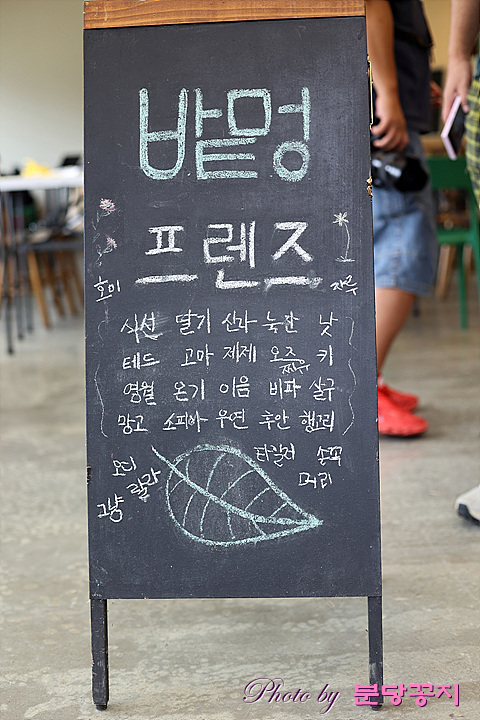 밭멍
프렌즈
호미 자루
시선 딸기 산과 낫
테드 고마 제제 오즈 키
영월 온기 이음 비파 살구
망고 소피아 우연 후안
오디 랄라 타일러
그냥 머리
Photo by 분당꽁지